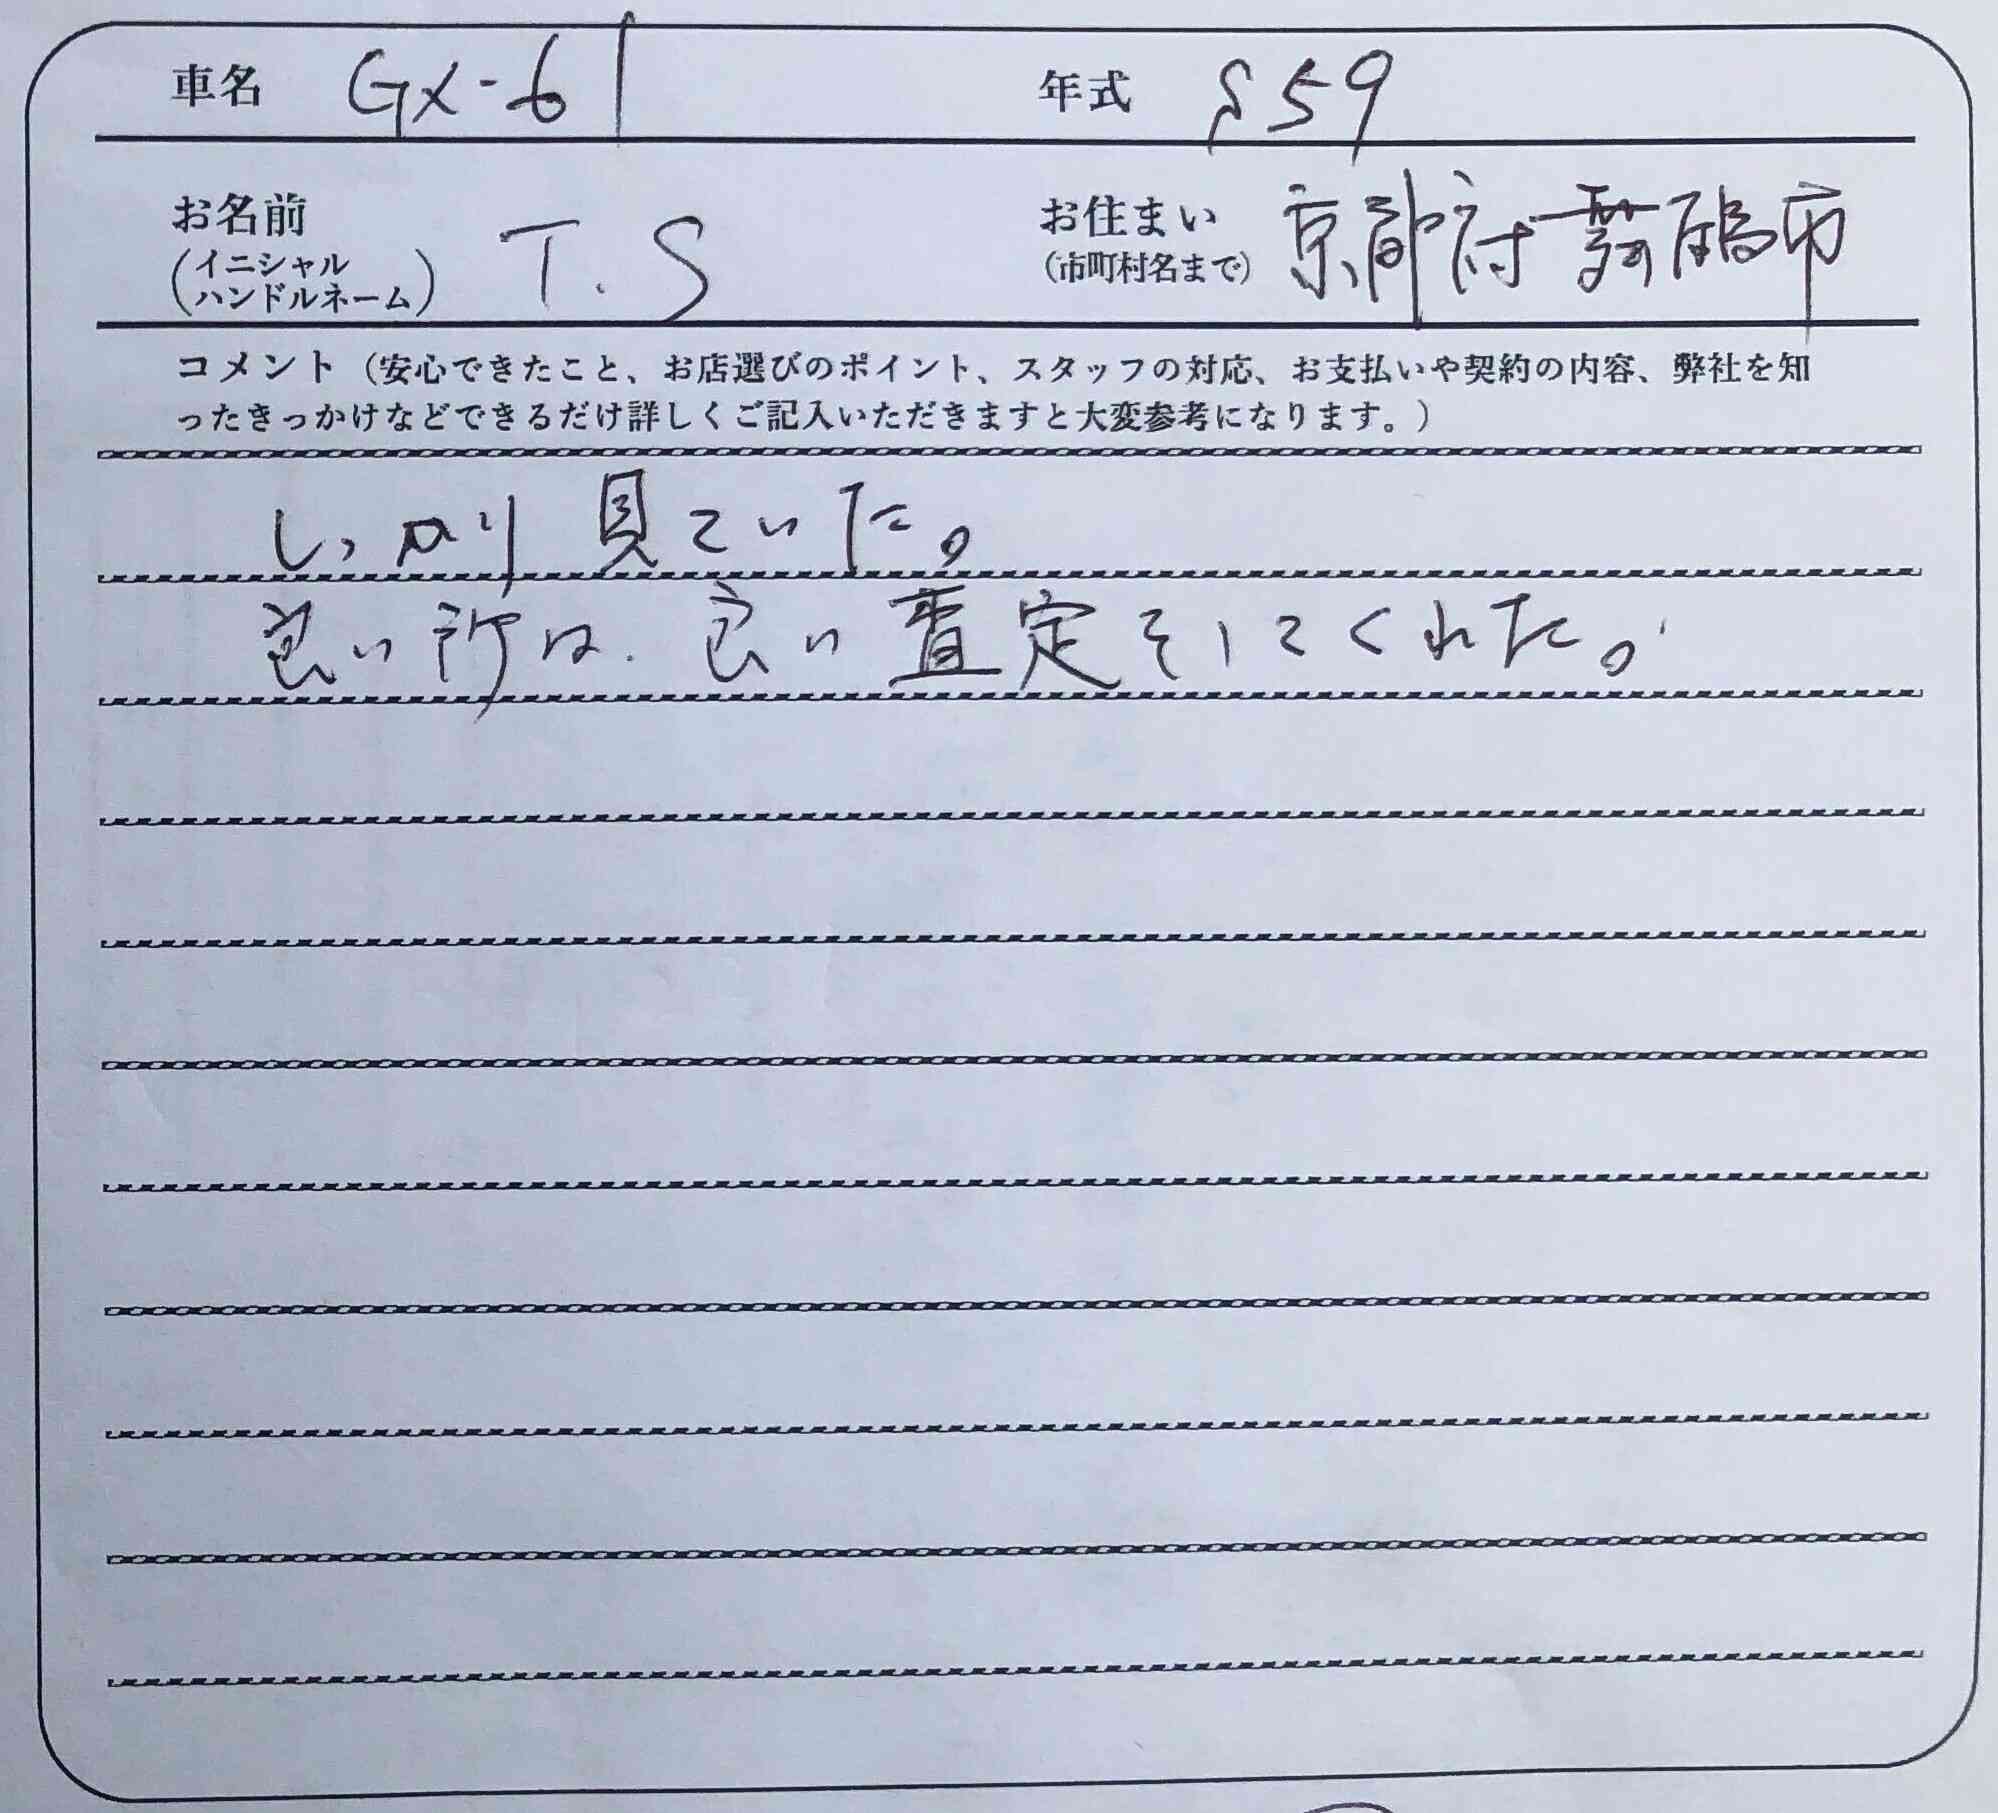 車名 GX-61 年式 S59
お名前 (イニシャル ハンドルネーム) T.S お住まい (市町村名まで) 京都府舞鶴市
コメント（安心できたこと、お店選びのポイント、スタッフの対応、お支払いや契約の内容、弊社を知
ったきっかけなどできるだけ詳しくご記入いただきますと大変参考になります。）
しっかり見ていた。
良い所は、良い査定をしてくれた。